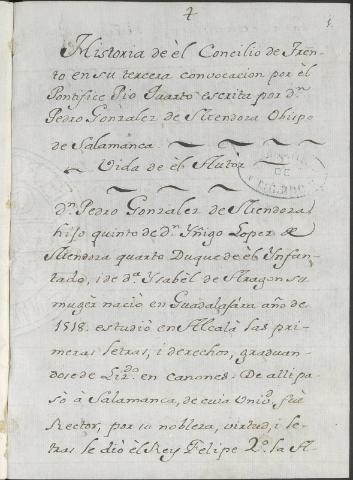 4
1.
Historia de èl Concilio de Tren-
to en su tercera convocacion por èl
Pontifice Pio Quarto escrita por dn.
Pedro Gonzalez de Mendora Obispo
de Salamanca.
Vida de èl Autòr
dn. Pedro Gonzalez de Mendoza,
hijo quinto de dn. Yñigo Lopez de
Mendora quarto Duque de èl Ynfan-
tado, i de da. Ysabèl de Aragon su
mugèr naciò en Guadalajára año de
1518. estudiò en Alcalà las pri-
meras letras, i derechos, graduan-
dose de Licdo. en canones. De alli pa-
sò à Salamanca, de cuia Univd. fuè
Rector, por su nobleza, virtud, i le-
tras le diò èl Rey Felipe 2º. la A-